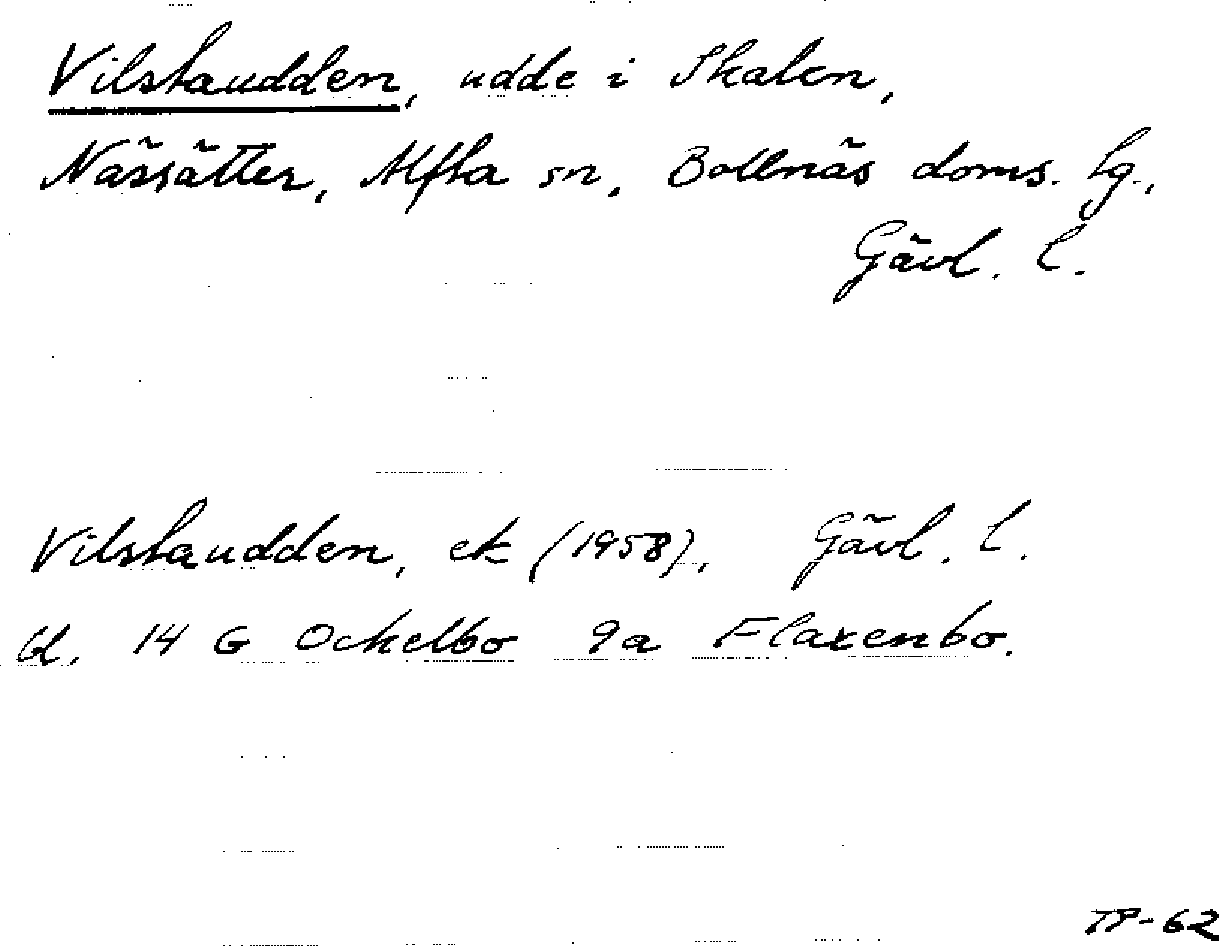 Vilstaudden, udde i Skalen,
Nässätter, Alfta sn, Bollnäs doms. lg.,
Gävl. l.
Vilstaudden, ek (1958), Gävl. l.
bl. 14 G Ockelbo 9a Flaxenbo.
TP-62